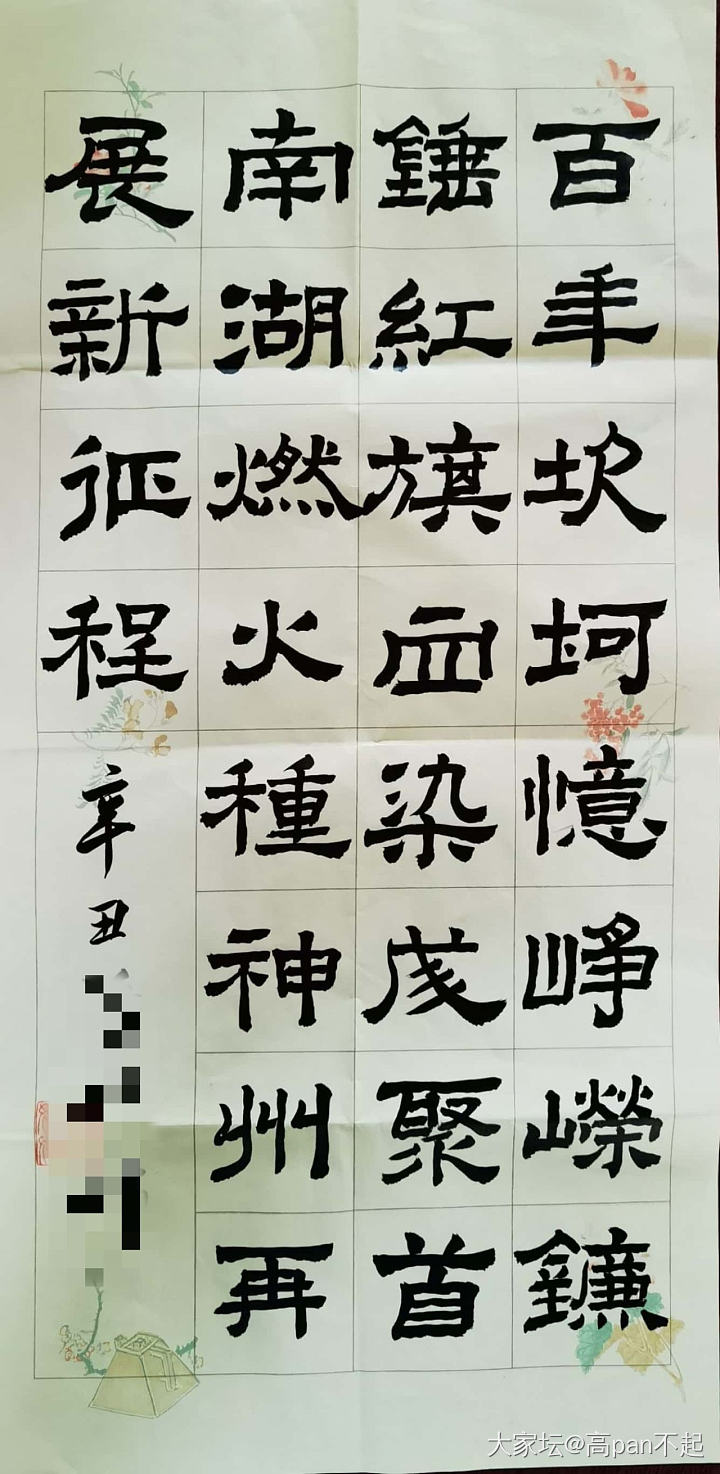 百年坎坷憶崢嶸鐮
錘紅旗血染成聚首
南湖燃火種神州再
展新征程
辛丑
大家坛@高pan不起